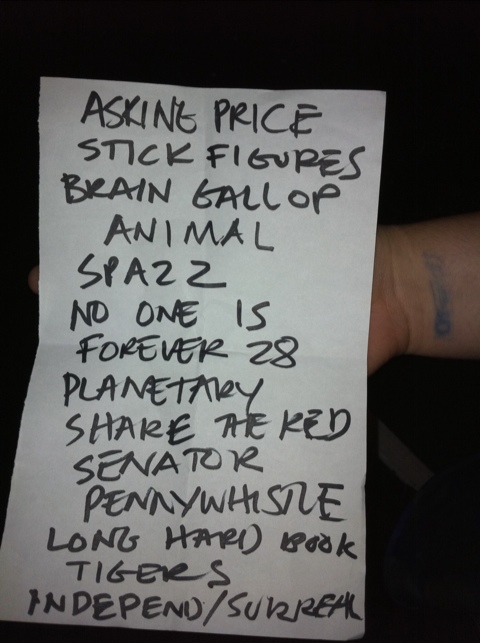 ASKING PRICE
STICK FIGURES
BRAIN GALLOP
ANIMAL
SPAZZ
NO ONE IS
FOREVER 28
PLANETARY
SHARE THE RED
SENATOR
PENNYWHISTLE
LONG HARD BOOK
TIGERS
INDEPEND/SURREAL